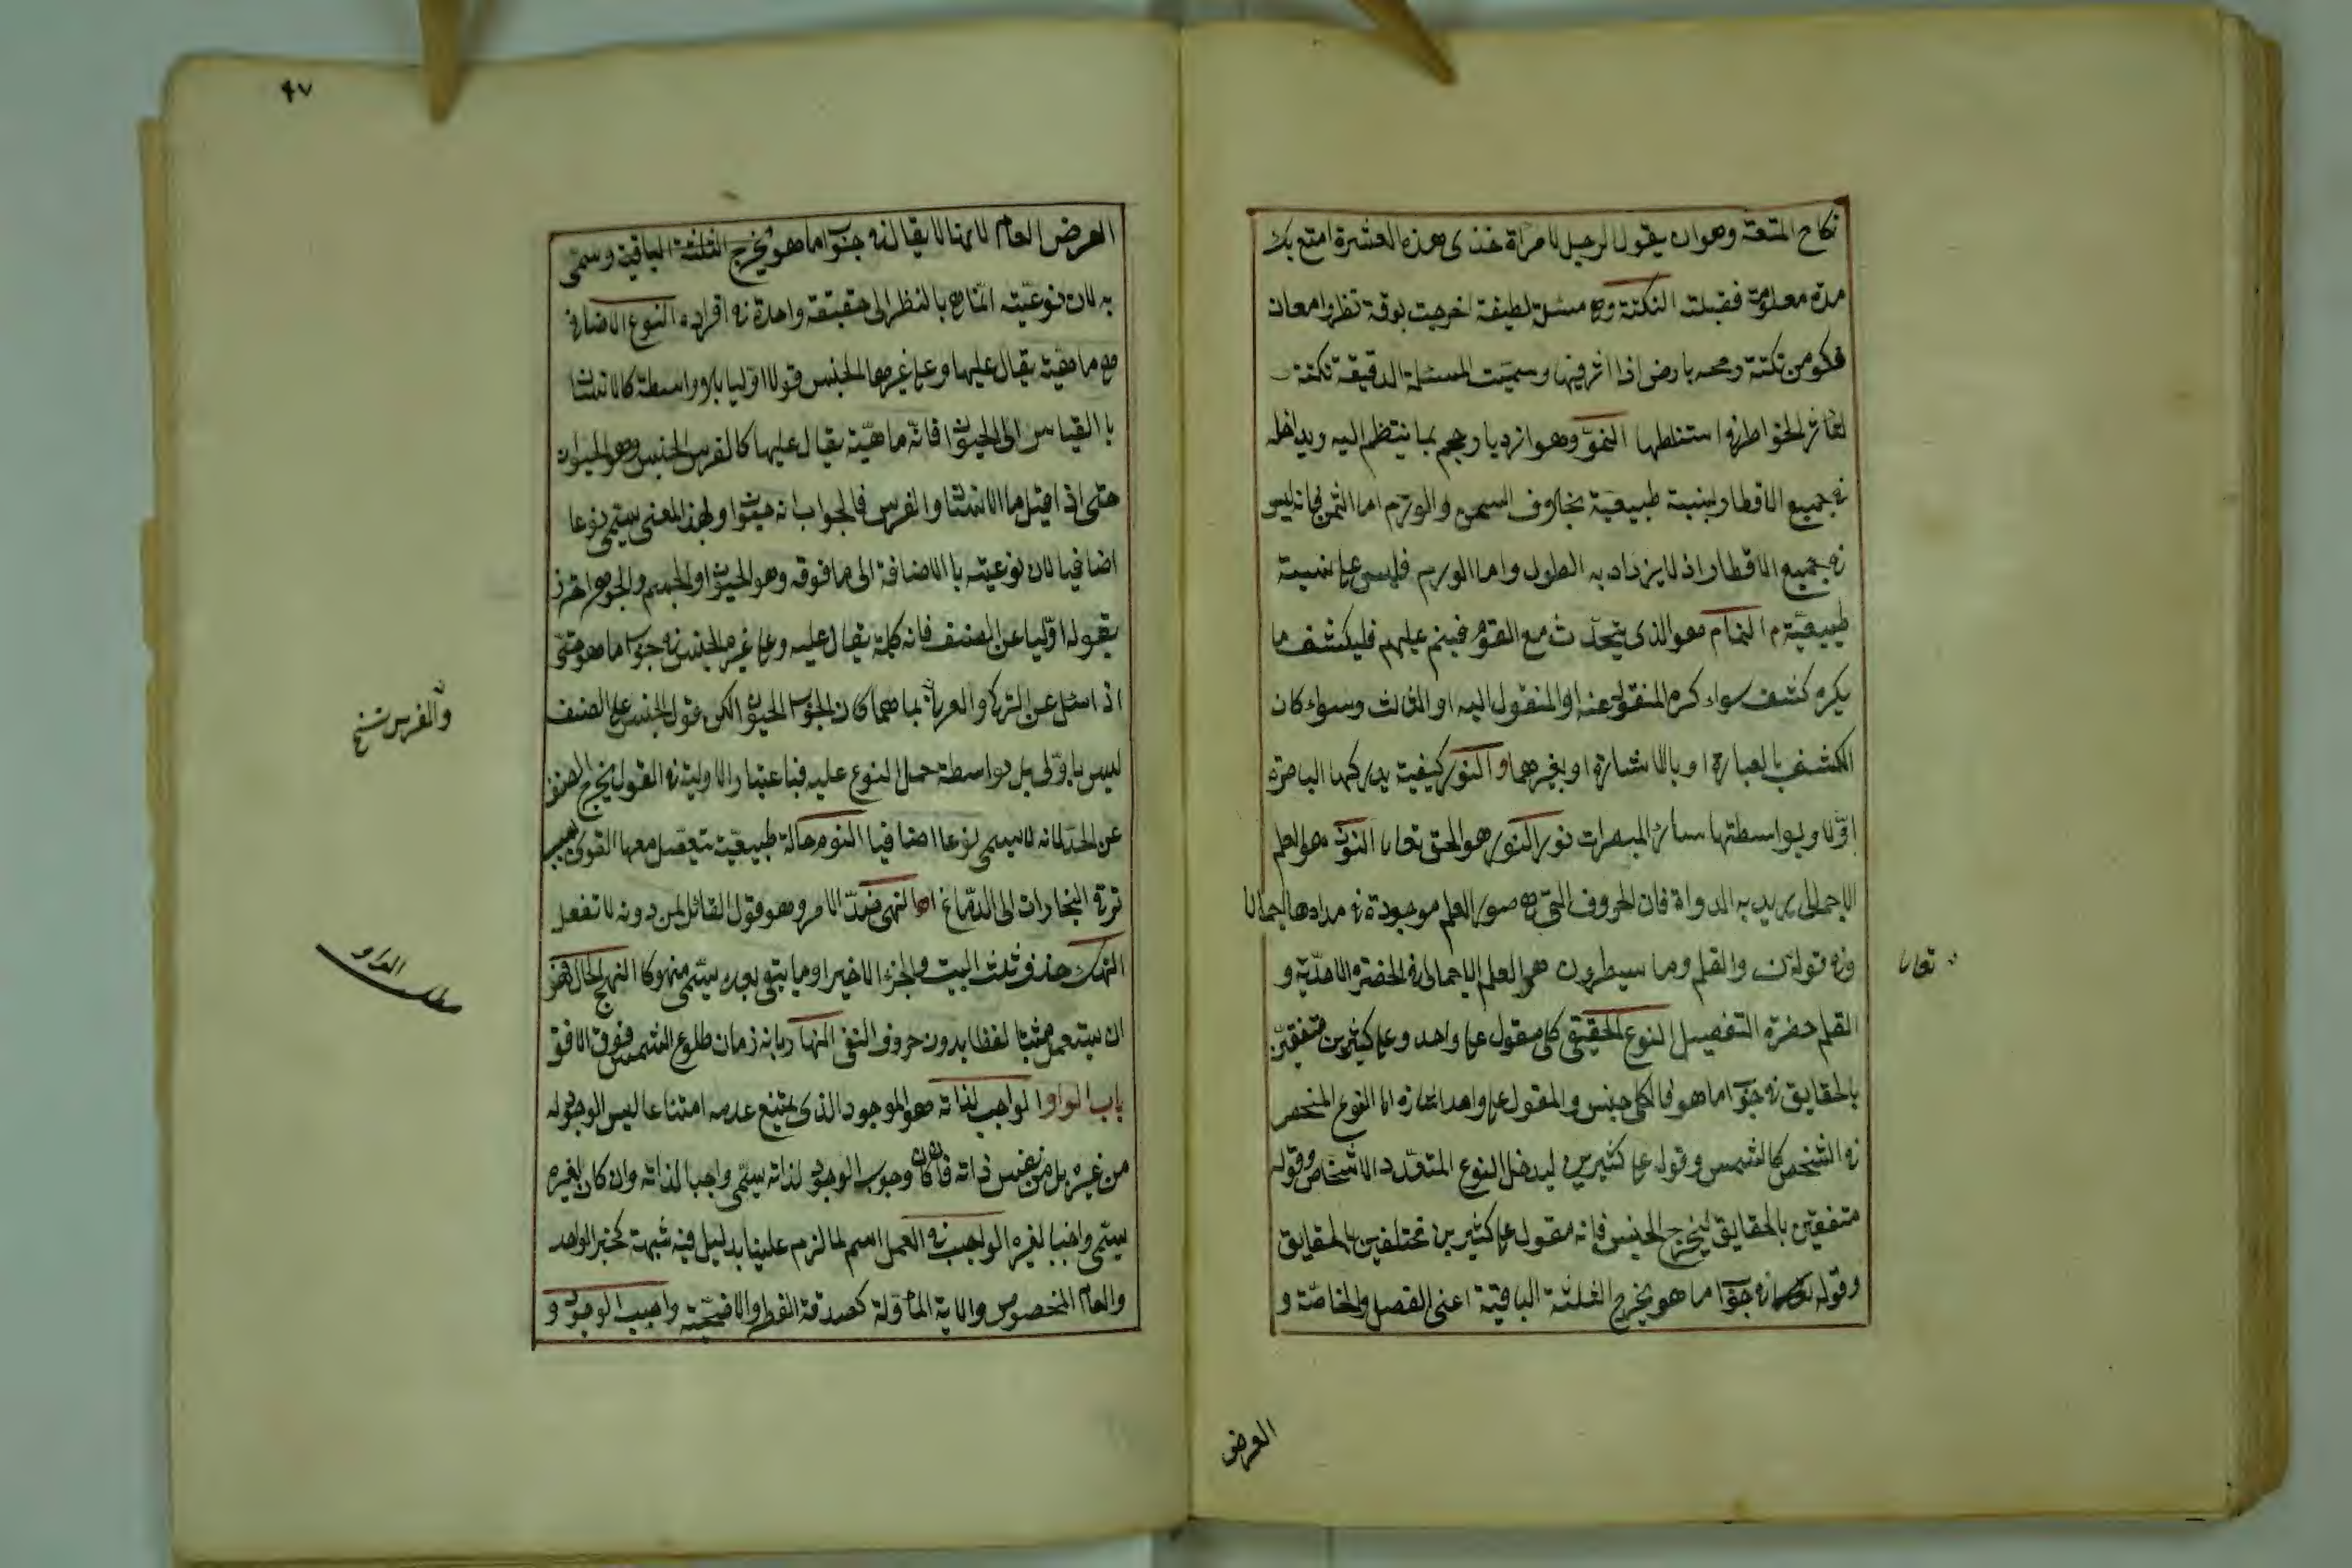 نكاح المتعة وهو ان يقول الرجل لامرأة خذى هذه العشرة امتع بك
مدة معلومة فقبلت النكتة وهى مسئلة لطيفة اخرجت بدقة نظر وامعان
فكر من نكتة رمحه بارض اذا اثر فيها وسميت المسئلة الدقيقة نكتة
لتاثر الخواطر فى استنباطها النمو وهو ازدياد حجم بما ينتظم اليه ويداخله
فى جميع الاقطار بنسبة طبيعية بخلاف السمن والورم اما السمن فانه ليس
فى جميع الاقطار اذ لا يزداد به الطول واما الورم فليس على نسبة
طبيعية م النمام هو الذى يتحدث مع القوم فينم عليهم فيكشف ما
يكره كشفه سواء كره المنقول عنه او المنقول اليه او الثالث وسواء كان
الكشف بالعبارة او بالاشارة او بغيرهما والنور كيفية يدركها الباصرة
اولا وبواسطتها سائر المبصرات نور النور هو الحق تعالى النون هو العلم
الاجمالى يريد به الدواة فان الحروف التى هى صور العلم موجودة فى مدادها اجمالا
وفى قوله ن والقلم وما يسطرون هو العلم الاجمالى فى الحضرة الاحدية و
تعالى
القلم حضرة التفصيل النوع الحقيقى كلى مقول على واحد وعلى كثيرين متفقين
بالحقايق فى جواب ما هو فالكلى جنس والمقول على واحد اشارة الى النوع المنحصر
فى الشخص كالشمس وقوله على كثيرين ليدخل النوع المتعدد الاشخاص وقوله
متفقين بالحقايق ليخرج الجنس فانه مقول على كثيرين مختلفين بالحقايق
وقوله فى جواب ما هو يخرج الثلثة الباقية اعنى الفصل والخاصة و
العرض
٩٧
العرض العام لانها لا يقال فى جواب ما هو يخرج الثلثة الباقية وسمى
به لان نوعيته انما هى بالنظر الى حقيقة واحدة فى افراده النوع الاضافى
هى ماهية يقال عليها وعلى غيرها الجنس قولا اوليا بلا واسطة كالانسان
بالقياس الى الحيوان فانه ماهية يقال عليها كالفرس الجنس وهو الحيوان
حتى اذا قيل ما الانسان والفرس فالجواب انه حيوان ولهذا المعنى يسمى نوعا
اضافيا لان نوعيته بالاضافة الى ما فوقه وهو الحيوان والجسم والجوهر احترز
بقوله اوليا عن الصنف فانه كلى يقال عليه وعلى غيره الجنس فى جواب ما هو حتى
اذا سئل عن التركى والعربى بما هما كان الجواب الحيوان لكن قول الجنس على الصنف
والفرس نسخ
ليس باولى بل بواسطة حمل النوع عليه فباعتبار الاولية فى القول يخرج الصنف
عن الحد لانه لا يسمى نوعا اضافيا النوم حالة طبيعية تتعطل معها القوى بسبب
ترقى البخارات الى الدماغ النهى ضد الامر وهو قول القائل لمن دونه لا تفعل
النهك حذف ثلث البيت والجزء الاخير او ما بقى بعده يسمى منهوكا
مطلب الواو
ان يستعمل لفظا بدون حروف النفى النهار زمان طلوع الشمس فوق الافق
باب الواو الواجب لذاته هو الموجود الذى يمتنع عدمه امتناعا ليس الوجود له
من غيره بل من نفس ذاته فان كان وجوب الوجود لذاته يسمى واجبا لذاته وان كان لغيره
يسمى واجبا لغيره الواجب فى العمل اسم لما لزم علينا بدليل فيه شبهة كخبر الواحد
والعام المخصوص والاية المأولة كصدقة الفطر والاضحية واجب الوجود و